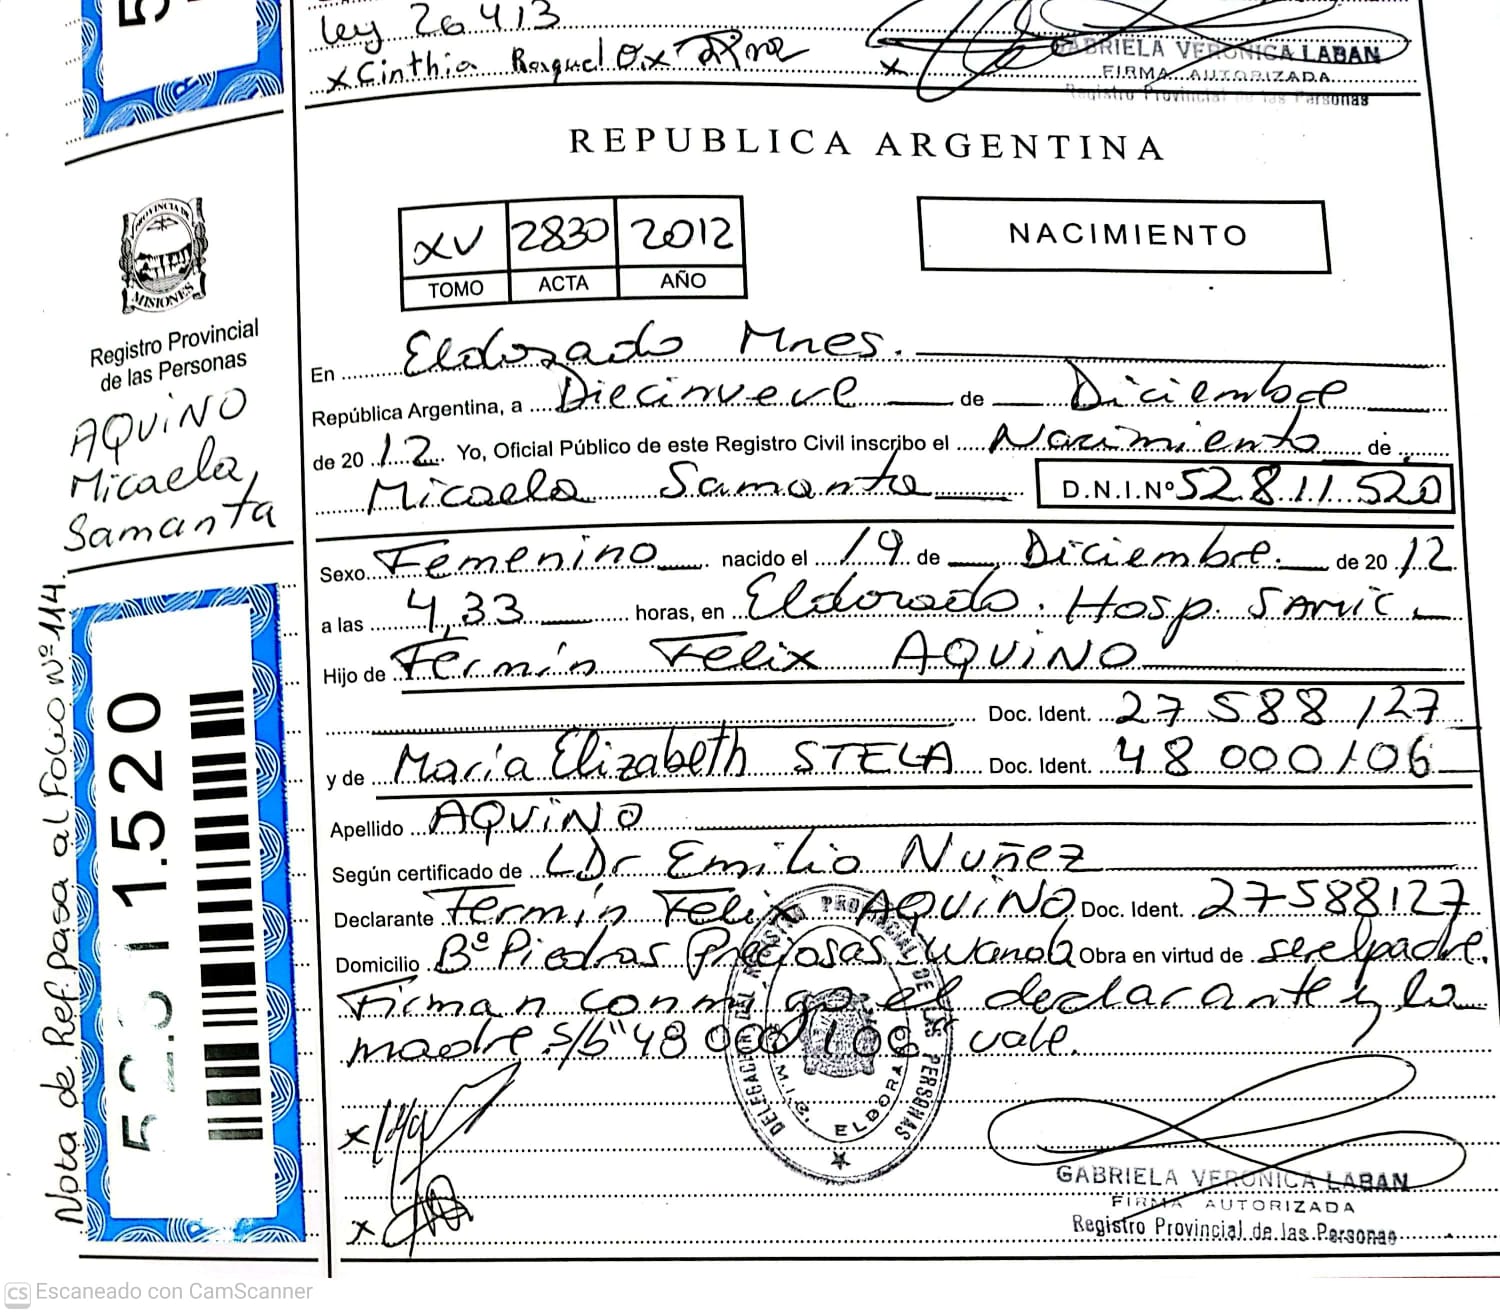 ley 26.413
x Cinthia Raquel
GABRIELA VERONICA LABAN
FIRMA AUTORIZADA
Registro Provincial de las Personas
REPUBLICA ARGENTINA
XV 2830 2012
TOMO ACTA AÑO
NACIMIENTO
PROVINCIA DE
MISIONES
Registro Provincial
de las Personas
AQUINO
Micaela,
Samanta
En Eldorado Mnes.
República Argentina, a Diecinueve de Diciembre
de 2012 Yo, Oficial Público de este Registro Civil inscribo el Nacimiento de
Micaela Samanta D.N.I.Nº 52811520
Sexo Femenino nacido el 19 de Diciembre. de 2012
a las 4,33 horas, en Eldorado. Hosp. SAMIC
Hijo de Fermín Felix AQUINO
Doc. Ident. 27 588 127
y de María Elizabeth STELA Doc. Ident. 48 000 106
Apellido AQUINO
Según certificado de Dr Emilio Nuñez
Declarante Fermín Felix AQUINO Doc. Ident. 27588127
Domicilio Bº Piedras Preciosas, Wanda Obra en virtud de ser el padre.
Firman conmigo el declarante y la
madre. s/b "48 000 106" vale.
DELEGACION DEL REGISTRO PROVINCIAL DE LAS PERSONAS
ELDORADO
x
x
GABRIELA VERONICA LABAN
FIRMA AUTORIZADA
Registro Provincial de las Personas
Nota de Ref. pasa al Folio Nº 114.
52.811.520
CS Escaneado con CamScanner